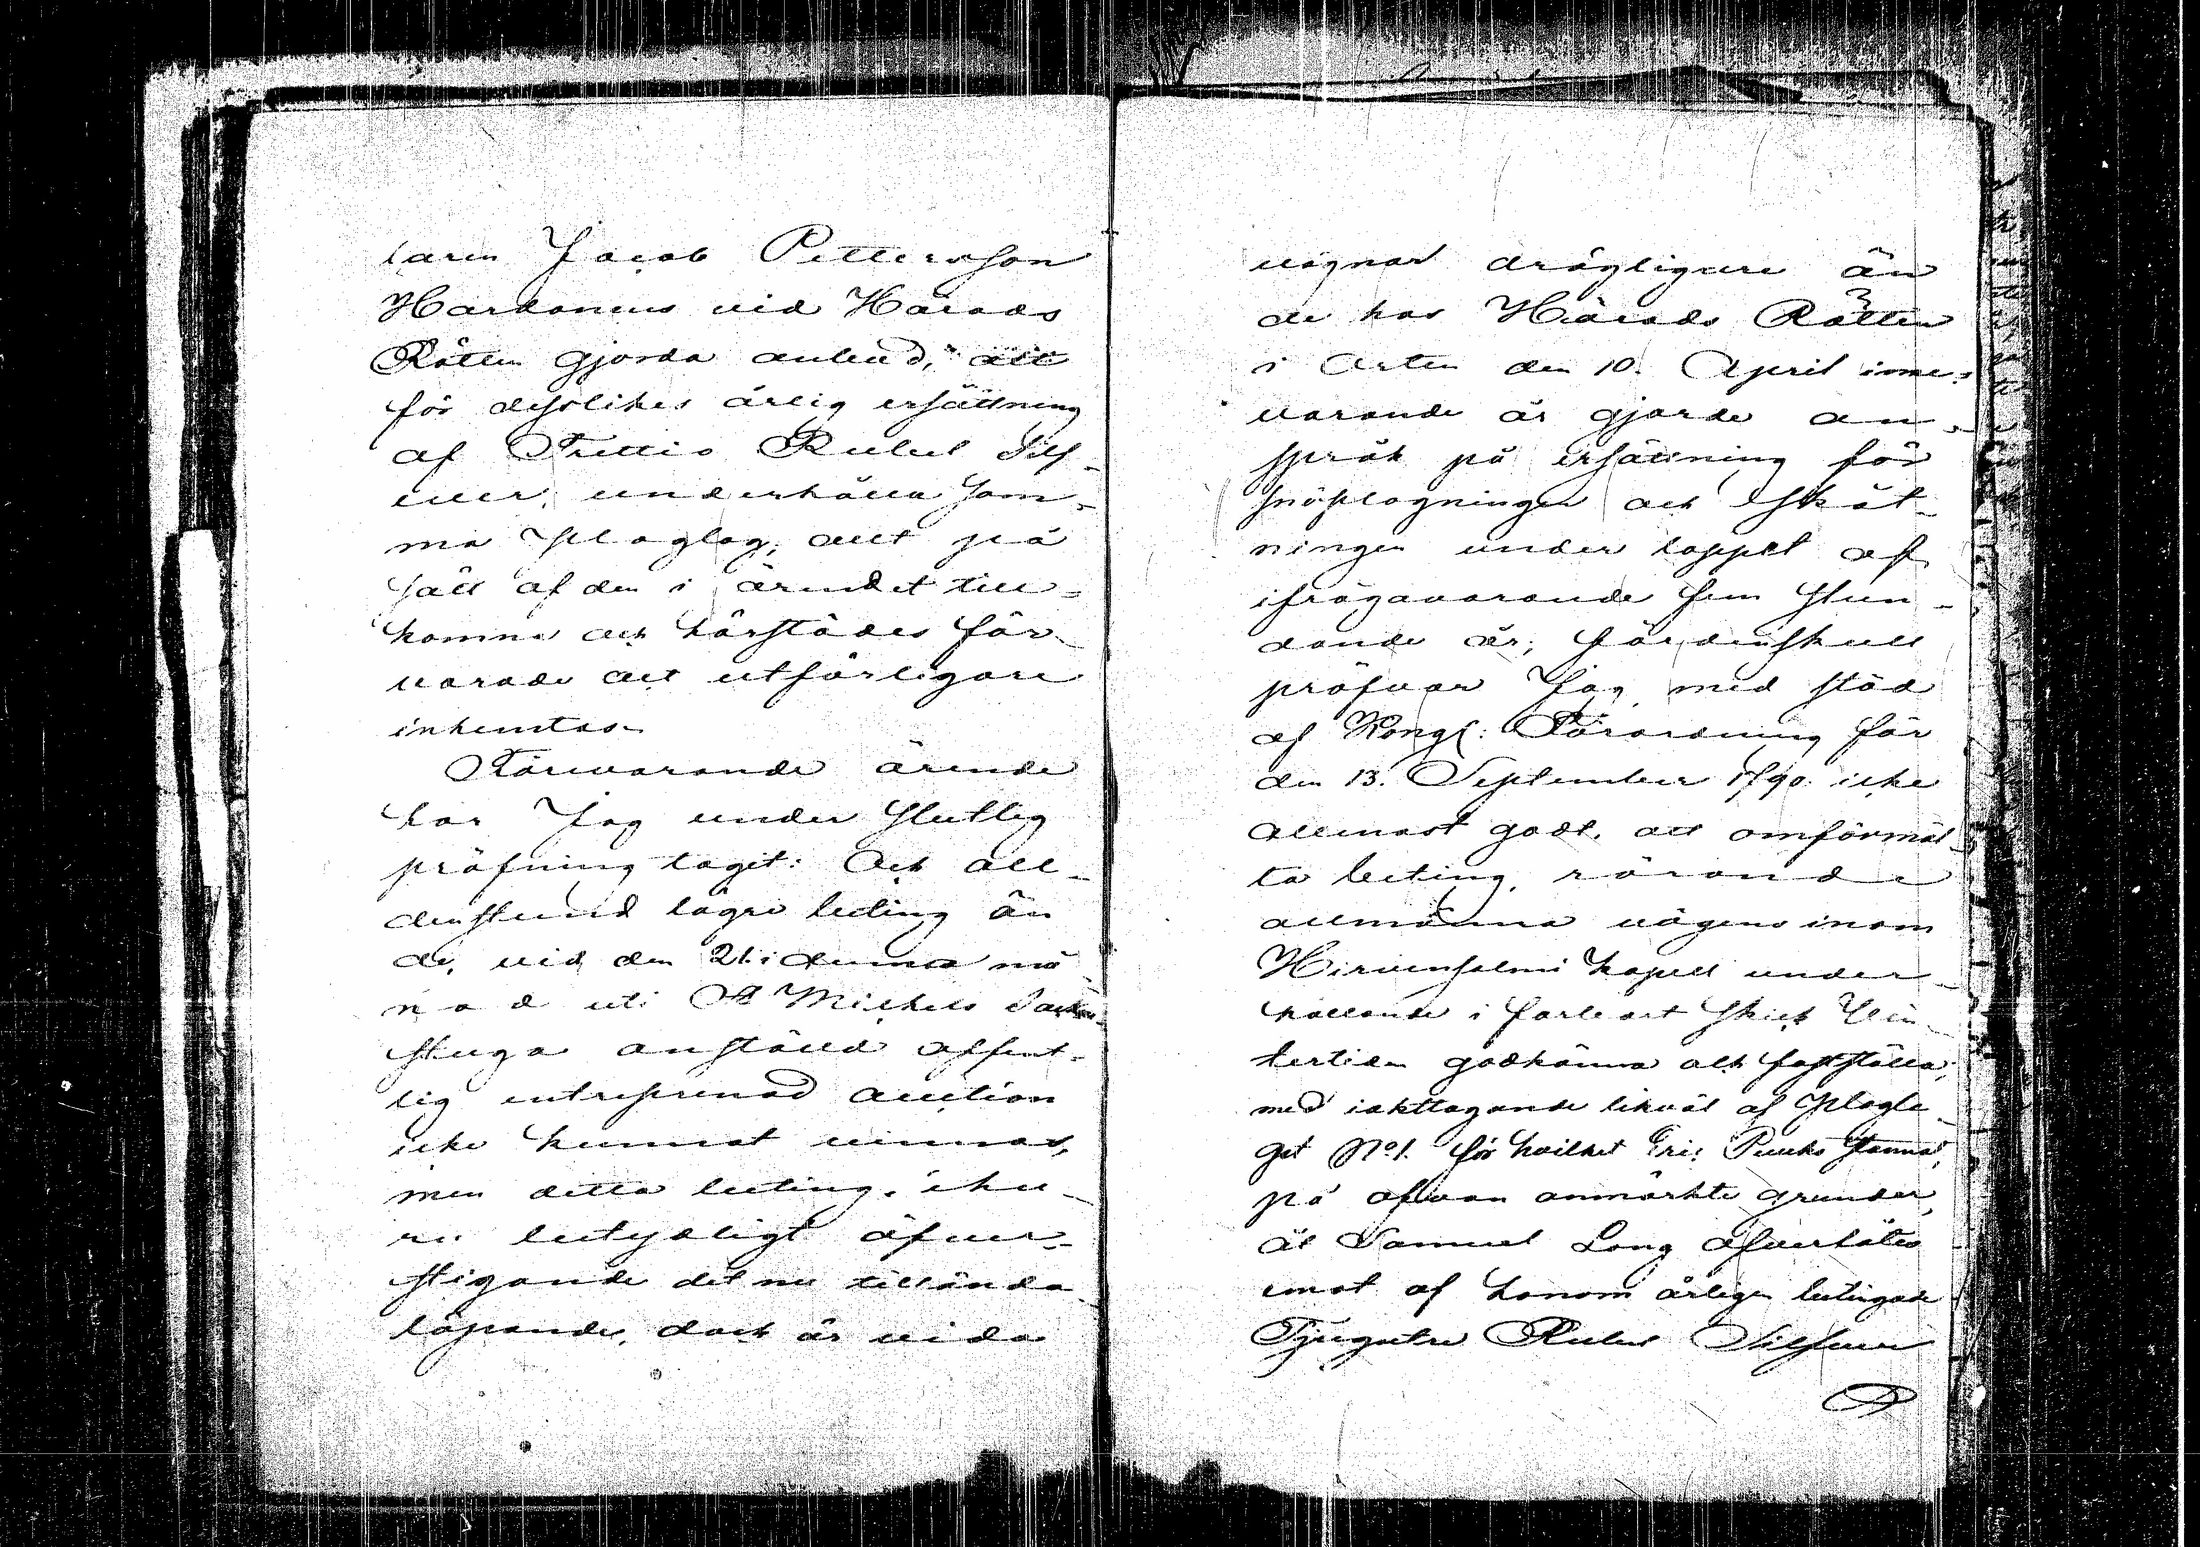 laren Jacob Pettersson
Hardonius vid Härads
Rätten gjorda anbud, att
för desslikes årlig ersättning
af Trettio Rubel Silf-
ver, underhålla sam-
ma Ploglag; allt på
sätt af den i ärendet till-
komna och härstädes för-
varade act utförligare
inhemtas.
Förevarande ärende
har Jag under slutlig
pröfning tagit: Och all-
denstund lägre beting än
de, vid den 21. i denna må-
nad uti St Michels
stuga anstäld offent-
lig entreprenad auction
icke kunnat vinnas,
men detta beting, ehu-
ru betydligt öfver-
stigande det nu tilländा-
löpande, dock är vida
vägnar drägligare än
de hos Härads Rätten
i Orten den 10. April inne-
varande år gjorde an-
språk på ersättning för
snöplogningen och skot-
ningen under loppet af
ifrågavarande fem stun-
dande år; fördenskull
pröfvar Jag med stöd
af Kongl: Förordning för
den 13. September 1790 icke
allenast godt, att omförmäl-
ta beting, rörande
allmänna vägens inom
Hirvensalmi kapell under-
hållande i farbart skick Vin-
tertiden godkänna och fastställa,
med iakttagande likväl af Plogla-
get No 1. för hvilket Eric Puuko stannat,
på ofvan anmärkte grunder,
åt Samuel Long öfverlåtes
emot af honom årligen betingade
Tjugutre Rubel Silfver